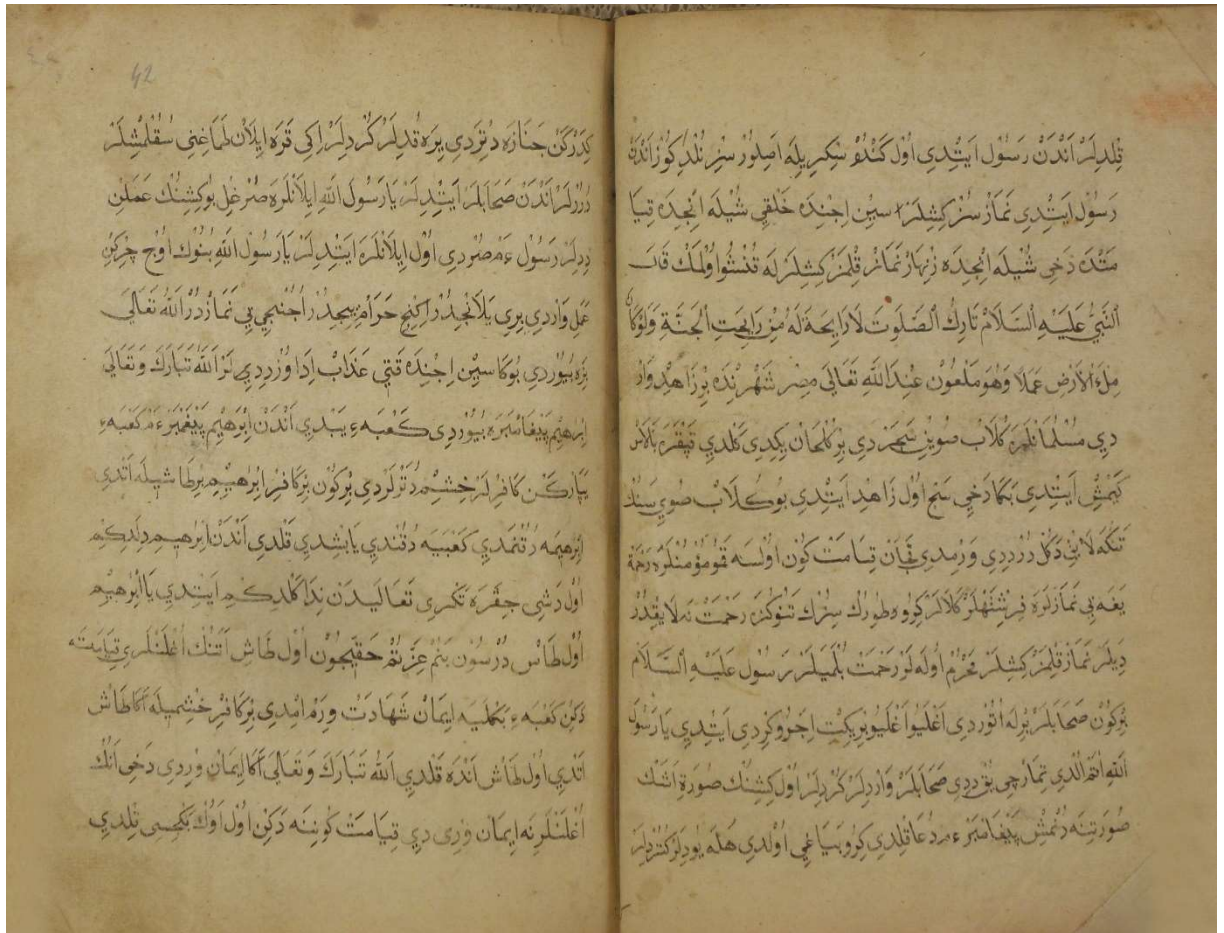 قِلدِلَرْ اَنْدَنْ رَسُولْ اَيتْدِي اُولْ كَنْدُو سِكِرِيلَه اَصِلُورْ سِزْ نُلْدُ كُوزْ اَنْدَنْ
رَسُولْ اَيتْدِي نَمَازْ سُزْ كِشِلَرْ سِيِنْ اِچِنْدَه خَلْقِي شُيلَه اِنْجِدَه قِيَا
مَتْدَه دَخِي شُيلَه اِنْجِدَه زِنْهَارْ نَمَازْ قِلْمَزْ كِشِلَرْ لَه قُنْشُوا وُلْمَكْ قَالَ
اَلنَّبِيُّ عَلَيْهِ اَلسَّلَامْ تَارِكُ اَلصَّلَوتْ لَا رَايِحَةَ لَهُ مِنْ رَايِحَتِ اَلْجَنَّةِ وَلَوْ كَانَ
مِلْءَ الْاَرْضِ عَمَلًا وَهُوَ مَلْعُونْ عِنْدَ اللهِ تَعَالَى مِصِرْ شَهْرِنْدَه بِرْ زَاهِدْ وَارْ
دِي مُسْلِمَانْلَرَه كُلَابْ صُويِنْ سَچَرْدِي بِرْ كُلْخَانْ يِكِدِي كَلْدِي قَپْقَرَه پَلَاسْ
كَيْمِشْ اَيتْدِي بَكَا دَخِي سَچْ اُولْ زَاهِدْ اَيتْدِي بُو كُلَابْ صُويِ سَنُكْ
تَنِكَه لَايِقْ دَكُلْ دُرْدِدِي وَرْمَدِي قَچَانْ قِيَامَتْ كُونْ اُولِسَه قَمُو مُؤْمِنْلَرَه رَحْمَة
يَغَه بِي نَمَازْلَرَه فِرِشْتَهْلَرْ كَلَالَرْ كِرُو وطُورُكْ سِزُكْ تَنُوكُزَه رَحْمَتْ نَه لَايِقْدُرْ
دِيلَرْ نَمَازْ قِلْمَزْ كِشِلَرْ مَحْرُمْ اُولَه لَرْ رَحْمَتْ بُلْمَيَلَرْ رَسُولْ عَلَيْهِ اَلسَّلَامْ
بِرْ كُونْ صَحَابَلَرْ بِرْلَه اُتُورْدِي اَغْلَيُو اَغْلَيُو بِرْ يِكِتْ اِچَرُو كِرْدِي اَيتْدِي يَا رَسُولَ
اَللهِ اَتَمْ اُلْدِي تِمَارْچِي يُقْ دِدِي صَحَابَلَرْ وَارْدِلَرْ كُرْدِلَرْ اُولْ كِشِنُكْ صُورَة اِتْنُكْ
صُورَتِنَه دُنْمِشْ پَيْغَامْبَرْ ءم دُعَا قِلْدِي كِرُو بَيَاغِي اُولْدِي هَلَه يُودِلَرْ كُتُرْدِلَرْ
42
كِدَرْكَنْ جَنَازَه دِتْرَدِي يِرَه قُدِلَرْ كُرْدِلَرْ اِكِي قَرَه اِيلَانْ طَمَاغِنِي سُقُلْمِشْلَرْ
دُرُرْلَرْ اَنْدَنْ صَحَابَلَرْ اَيتْدِلَرْ يَا رَسُولَ اللهِ اِيلَانْلَرَه صُرْغِلْ بُو كِشِنُكْ عَمَلِنْ
دِدِلَرْ رَسُولْ ءم صُرْدِي اُولْ اِيلَانْلَرَه اَيتْدِلَرْ يَا رَسُولَ اللهِ بُنُوكْ اُوچْ چِرْكِنْ
عَمَلِ وَارْدِي بِرِي يَلَانْجِدُرْ اِكِنْجِ حَرَامْ يِيجِدُرْ اُچُنْجِي بِي نَمَازْدُرْ اَللهُ تَعَالَى
بِزَه بُيُوُرْدِي بُوكَا سِيِنْ اِچِنْدَه قَتِي عَذَابْ اِدَا وُزْ دِدِي لَرْ اَللهُ تَبَارَكَ وَتَعَالَى
اِبْرَهِيمْ پَيْغَامْبَرَه بُيُوُرْدِي كَعْبَه ءِ يَپْدِي اَنْدَنْ اِبْرَهِيمْ پَيْغَمْبَرْ ءم كَعْبَه ءِ
يَپَارْكَنْ كَافِرْلَرْ خِشْمْ دُتَرْلَرْدِي بِرْ كُونْ بِرْ كَافِرْ اِبْرَهِيمِ بِرْ طَاشِيلَه اَتْدِي
اِبْرَهِيمَه دُقُنْمَدِي كَعْبَيَه دُقُنْدِي يَابِشْدِي قَلْدِي اَنْدَنْ اِبْرَهِيمْ دِلَدِكِمْ
اُولْ دَشِي چِقَرَه تَكْرِي تَعَالَيدَنْ نِدَا كَلْدِكِمْ اَيتْدِي يَا اِبْرَهِيمْ
اُولْ طَاشْ دُرْسُونْ بَنُمْ عِزَّتُمْ حَقِيچُونْ اُولْ طَاشْ اَتَنُكْ اُغْلَنْلَرِي قِيَامَتَه
دَكِنْ كَعْبَه ءِ بَكْلِيَه اِيمَانْ شَهَادَتْ وِرَمْ اِمْدِي بِرْ كَافِرْ خِشْمِيلَه اَكَا طَاشْ
اَتْدِي اُولْ طَاشْ اَنْدَه قَلْدِي اَللهُ تَبَارَكَ وَتَعَالَى اَكَا اِيمَانْ وِرْدِي دَخِي اَنُكْ
اُغْلَنْلَرِنَه اِيمَانْ وِرْدِي دِي قِيَامَتْ كُونِنَه دَكِنْ اُولْ اَوُكْ بَكْچِسِي قِلْدِي